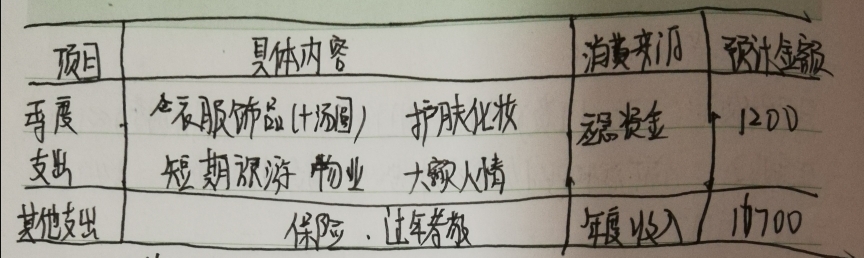 项目 具体内容 消费来源 预计金额
季度 衣服饰品(+汤圆) 护肤化妆 应急资金 1200
支出 短期旅游 物业 大额人情
其他支出 保险、过年孝敬 年度收入 700